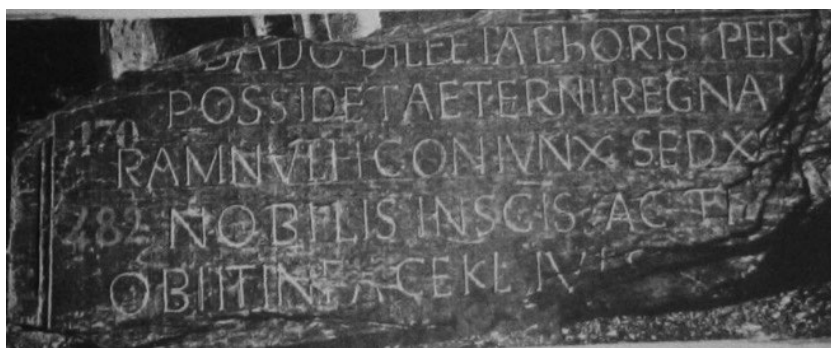 DILECTA CHORIS PER
POSSIDET AETERNI REGNA
170
RAMNULFI CONIVNX SED X
482 NOBILIS IN SCIS AC
OBIIT IN PACE KL